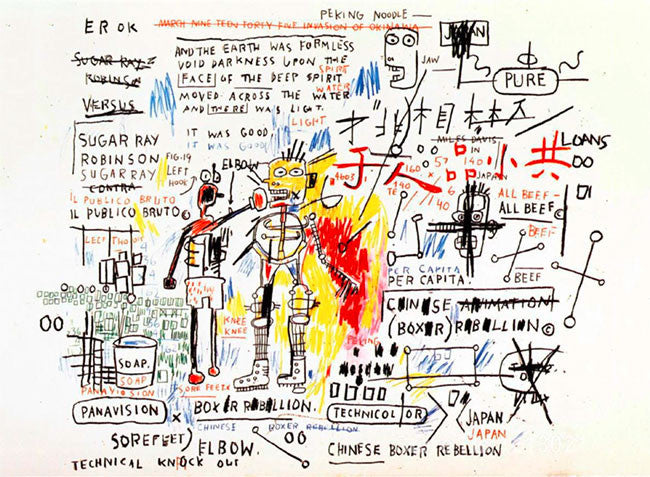 PEKING NOODLE
EROK
MARCH NINE TEEN FORTY FIVE INVASION OF OKINAWA
JAPAN
AND THE EARTH WAS FORMLESS
VOID DARKNESS UPON THE
FACE OF THE DEEP SPIRIT
MOVED ACROSS THE WATER
AND THERE WAS LIGHT.
SPIRIT
WATER
LIGHT
JAW
PURE
SUGAR RAY
ROBINSON
VERSUS
SUGAR RAY
ROBINSON
SUGARRAY
CONTRA
IL PUBLICO BRUTO
IL PUBLICO BRUTO©
IT WAS GOOD,
IT WAS GOOD,
FIG.19
LEFT
HOOK
ELBOW
4603
MILES DAVIS
IN
JAPAN
LOANS
于人口口小共
160
57
140
6
140
1140
ALL BEEF-
ALL BEEF©
BEEF
BEEF
PER CAPITA
PER CAPITA.
LEFT
CHINESE ANIMATION)
(BOXER) REBELLION©
KNEE
KNEE
PEKING
MUSEUM
SOAP.
SOAP
PANAVISION
PANAVISION
SORE FEET
BOXER REBELLION.
CHINESE BOXER REBELLION
TECHNICOLOR
JAPAN
JAPAN
SOREFEET)
ELBOW.
TECHNICAL KNOCK OUT
CHINESE BOXER REBELLION